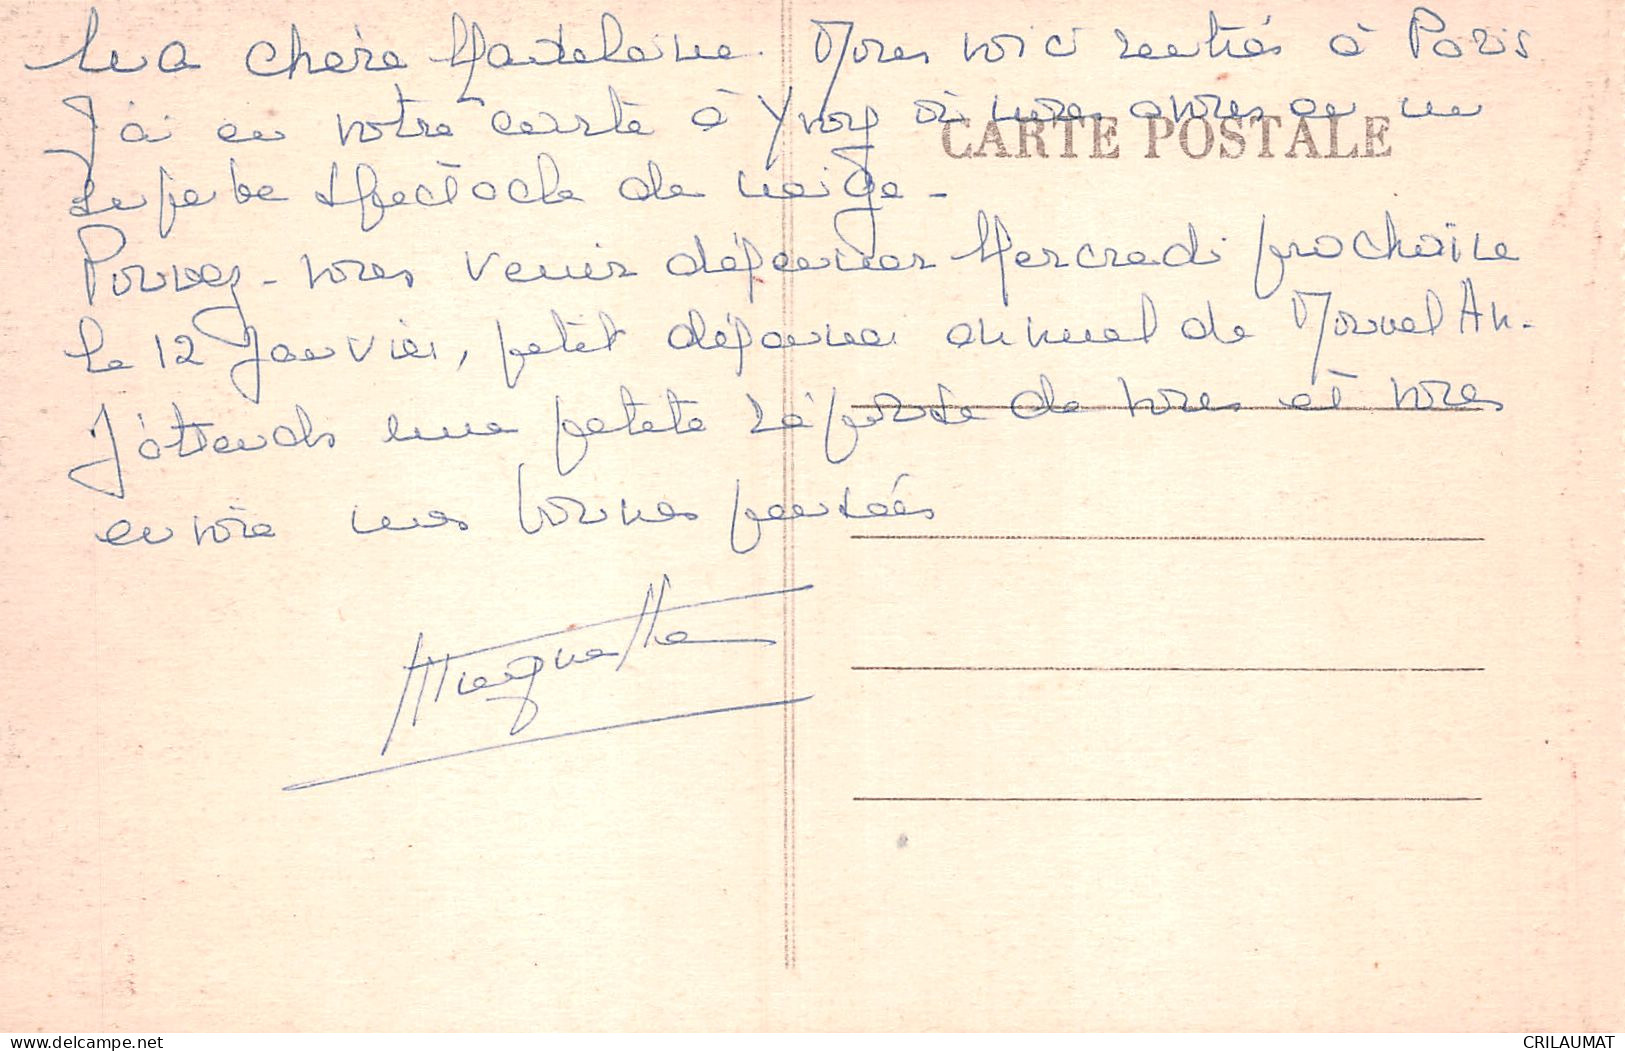 Ma chère Madeleine. Nous voici rentrés à Paris
J'ai eu votre carte à Yvoy où nous avons eu un
CARTE POSTALE
superbe spectacle de neige -
Pouvez-vous venir déjeuner Mercredi prochain
le 12 Janvier, petit déjeuner annuel de Nouvel An.
J'attends une petite réponse de vous et vous
envoie mes bonnes pensées
Huguette
CRILAUMAT